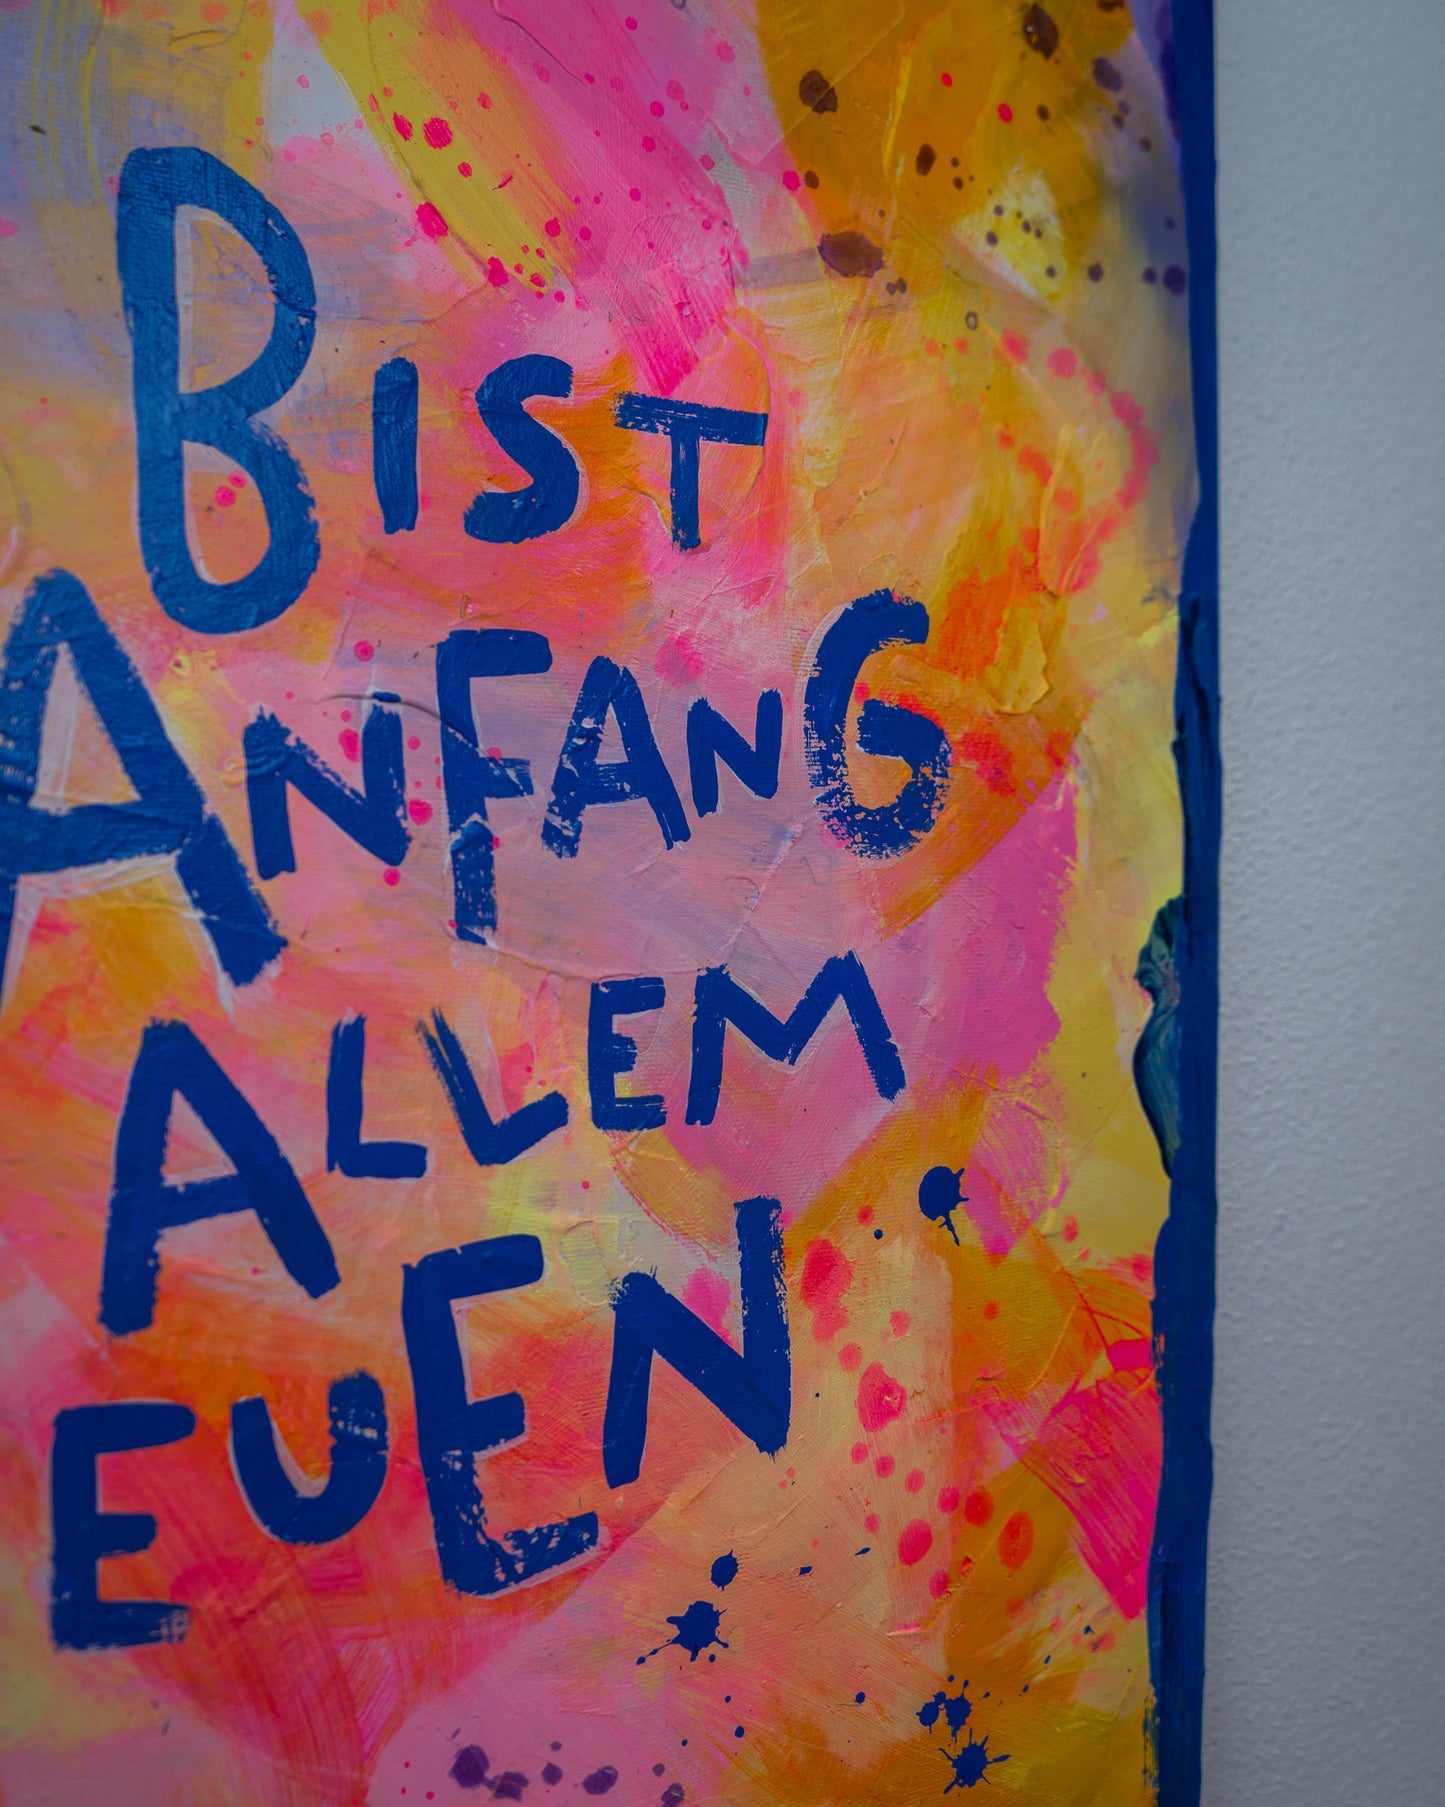 BIST
ANFANG
ALLEM
EUEN